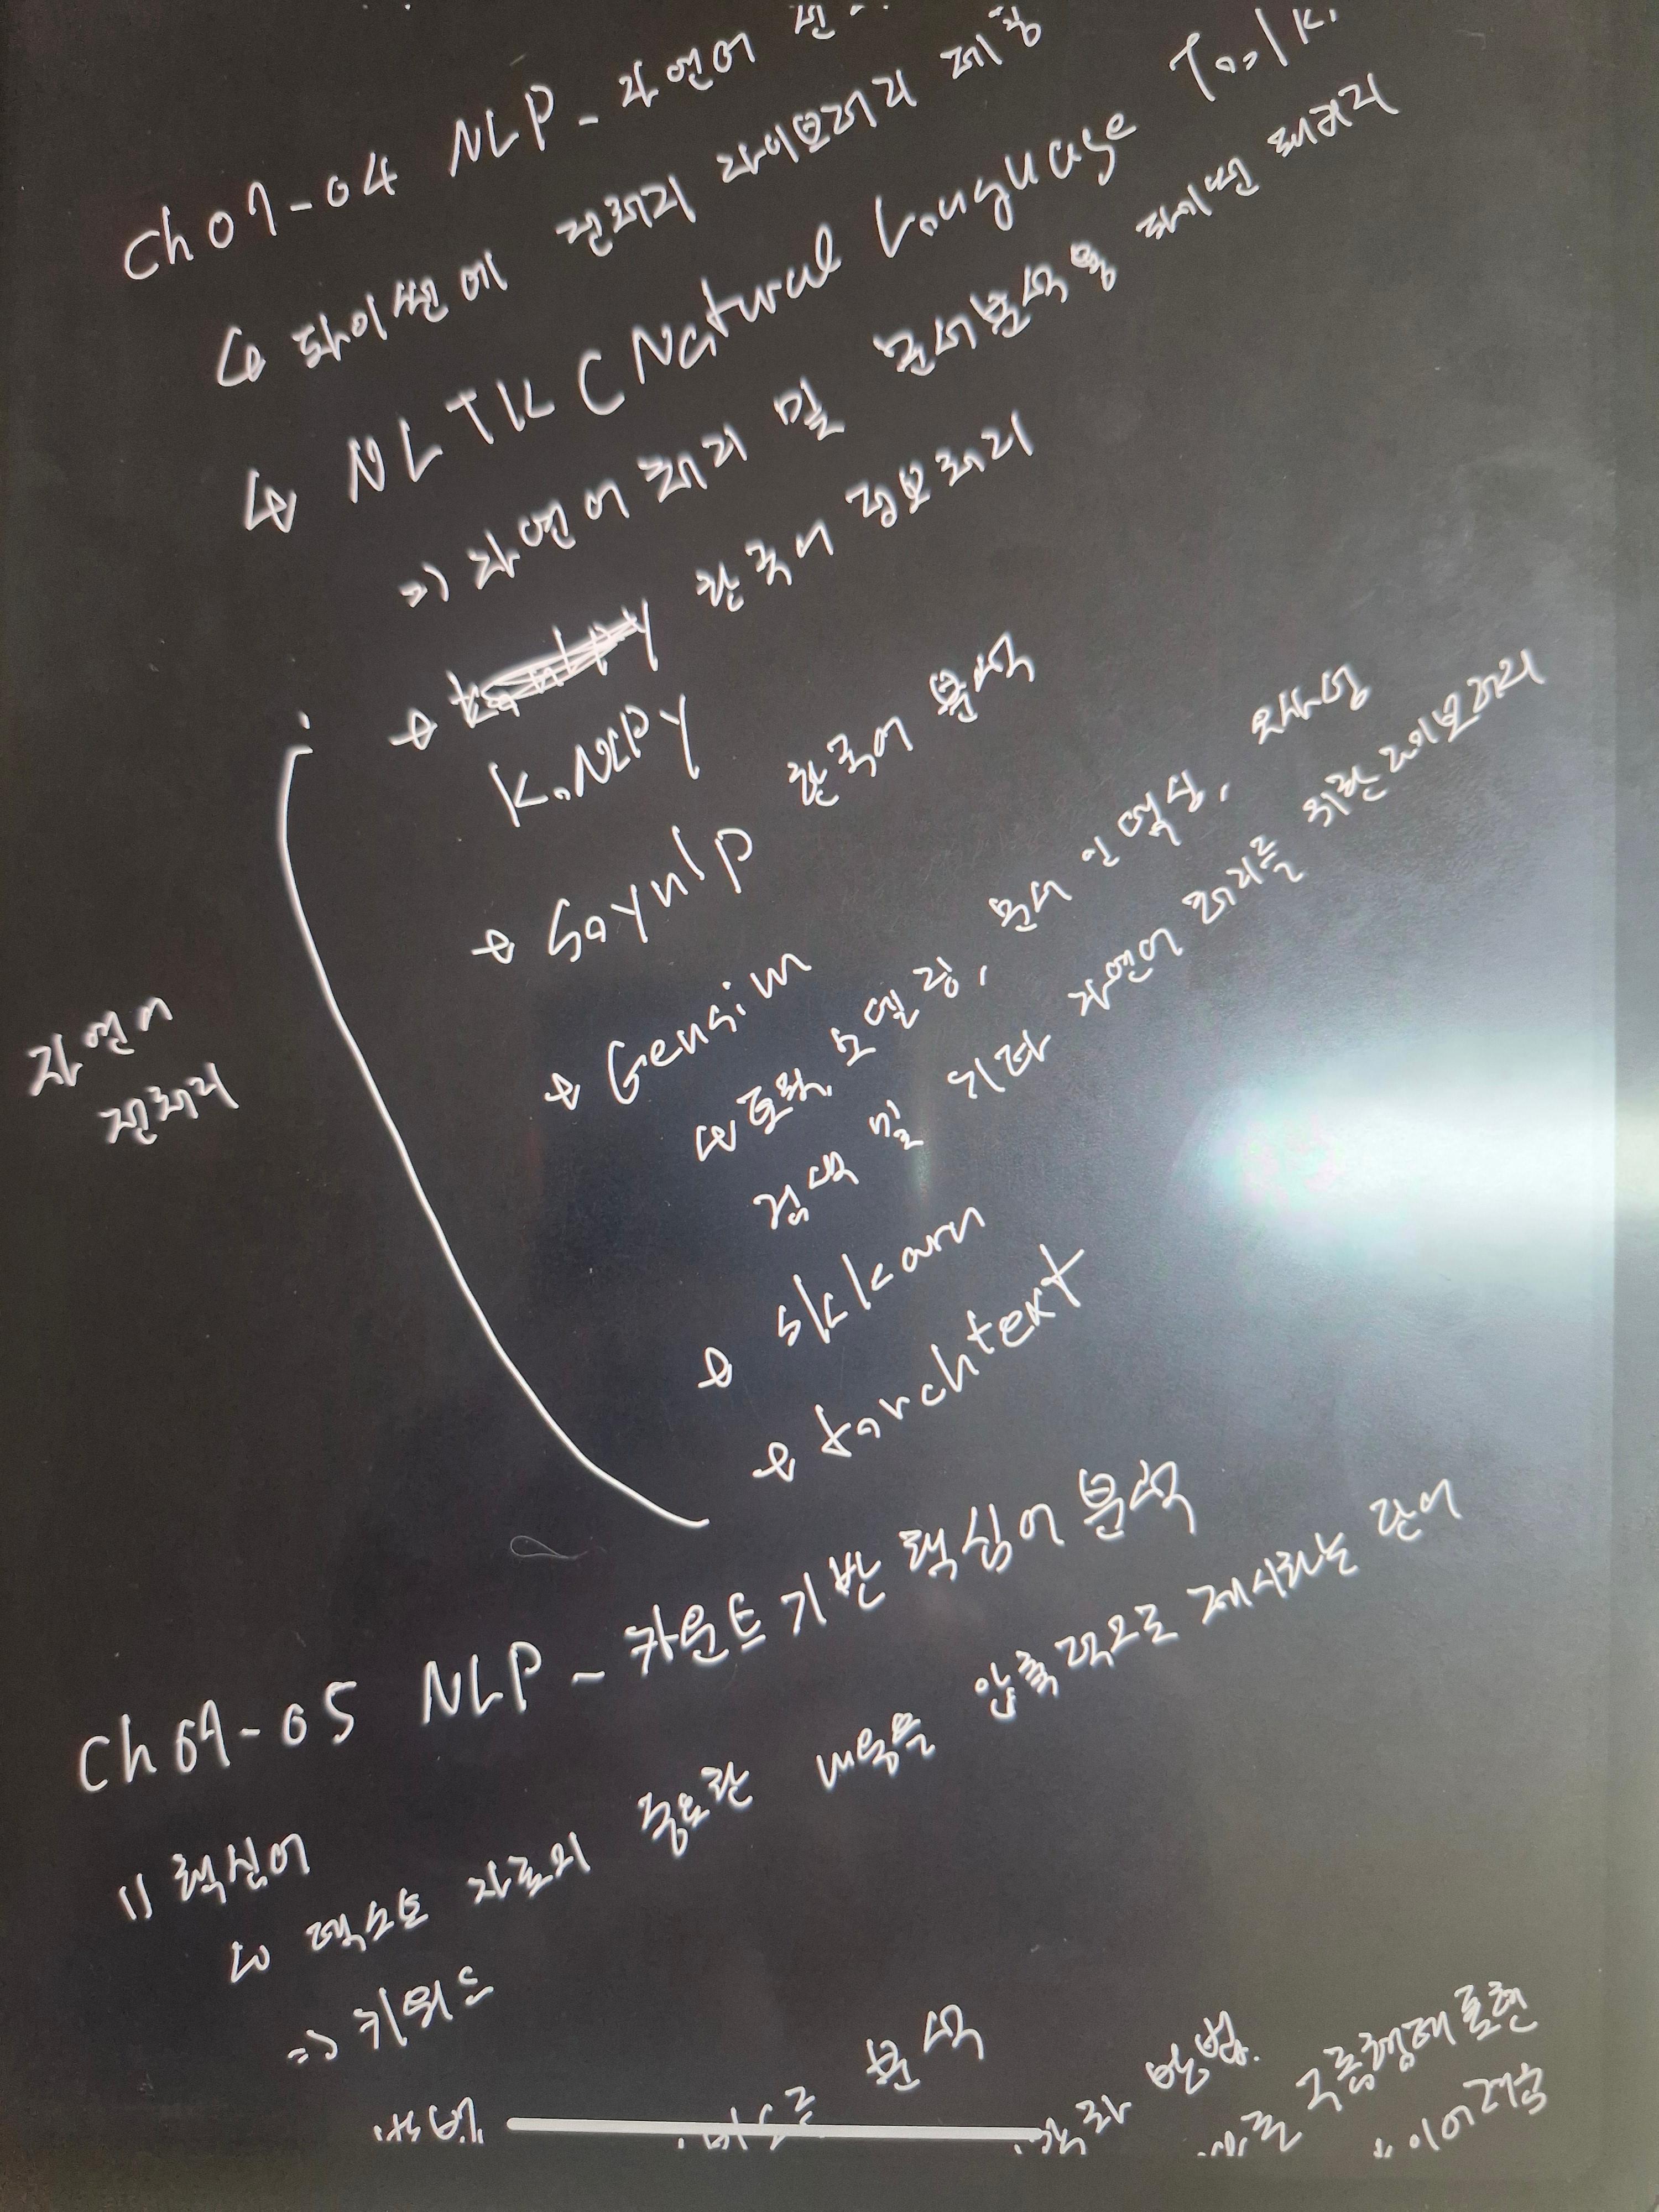 Ch09-04 NLP - 자연어
↳ 파이썬에 전처리 라이브러리 제공
↳ NLTK (Natural Language Toolki
=> 자연어 처리 및 문서분석용 파이썬 패키지
한국어 정보처리
KoNLPy
↳ Soynlp 한국어 분석
↳ Gensim
↳ 토픽 모델링, 문서 인덱싱, 유사성
검색 및 기타 자연어 처리를 위한 라이브러리
↳ sklearn
↳ torchtext
자연어
전처리
Ch09-05 NLP - 카운트 기반 핵심어 분석
1) 핵심어
↳ 텍스트 자료의 중요한 내용을 압축적으로 제시하는 단어
=> 키워드
분석
방법.